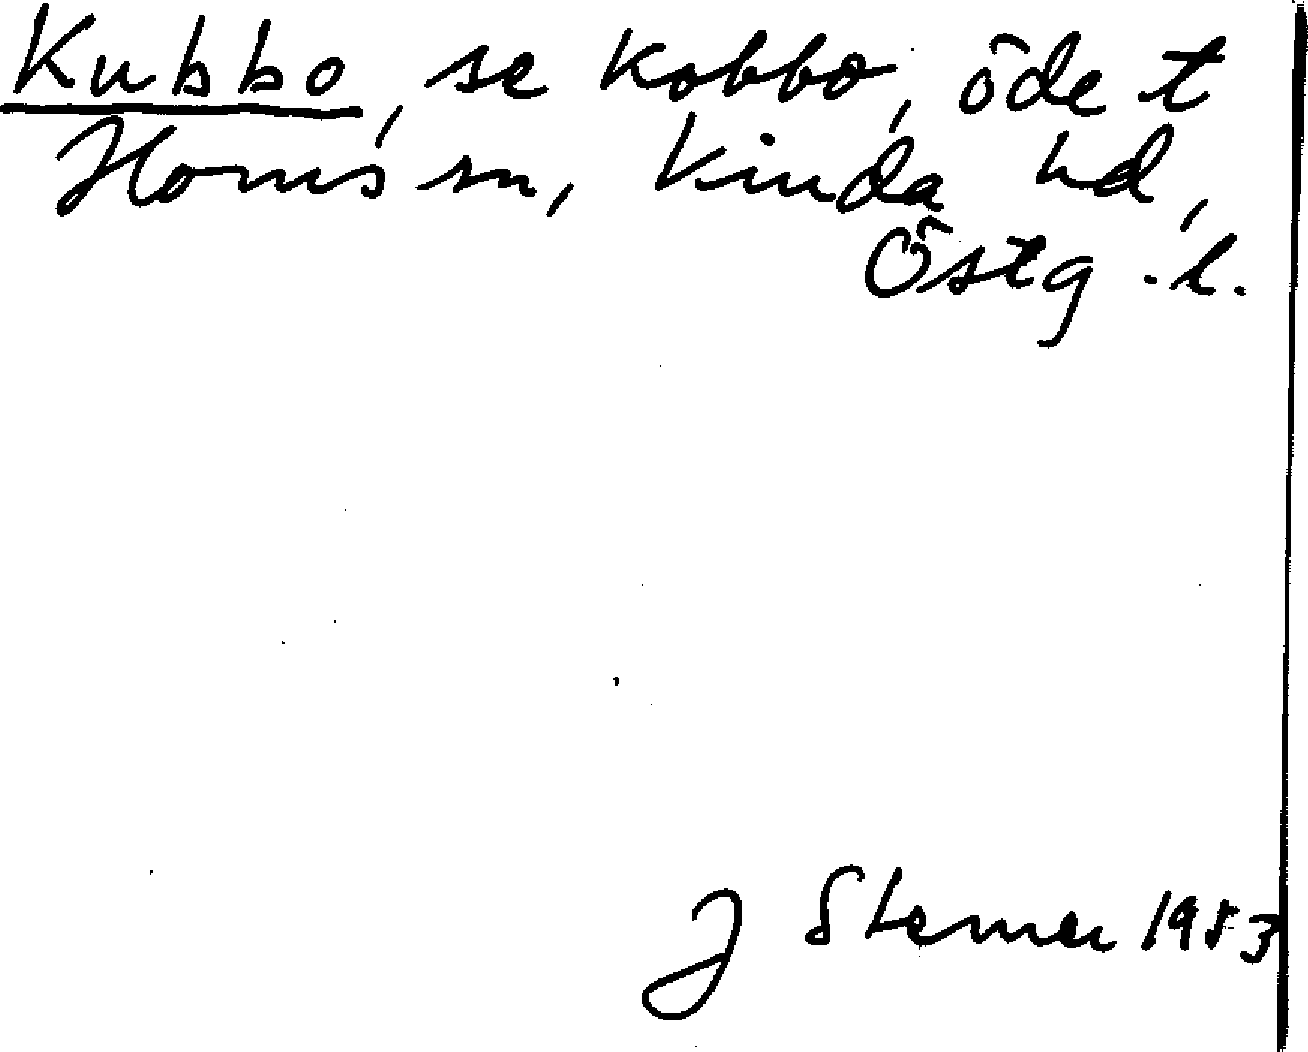 Kubbo, se Kobbo, öde t
Horns sn, Kinda hd,
Östg.l.
J Sterner 1983